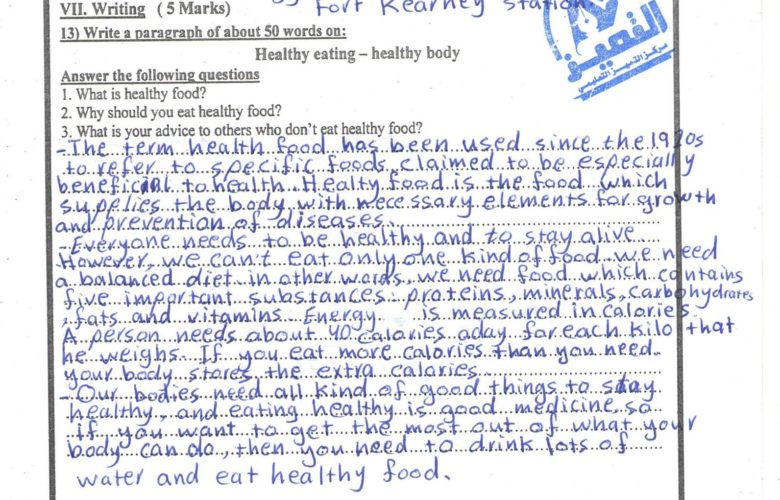 Fort Kearney station
VII. Writing ( 5 Marks)
13) Write a paragraph of about 50 words on:
Healthy eating – healthy body
Answer the following questions
1. What is healthy food?
2. Why should you eat healthy food?
3. What is your advice to others who don't eat healthy food?
- The term health food has been used since the 1920s
to refer to specific foods claimed to be especially
beneficial to health. Healty food is the food which
supplies the body with necessary elements for growth
and prevention of diseases.
- Everyone needs to be healthy and to stay alive
However, we can't eat only one kind of food. we need
a balanced diet in other words, we need food which contains
five important substances: proteins, minerals, carbohydrates
, fats and vitamins. Energy is measured in calories.
A person needs about 40 calories aday for each kilo that
he weighs. If you eat more calories than you need.
your body stores the extra calories
- Our bodies need all kind of good things to stay
healthy, and eating healthy is good medicine, so
if you want to get the most out of what your
body can do, then you need to drink lots of
water and eat healthy food.
التميز
مركز التميز التعليمي